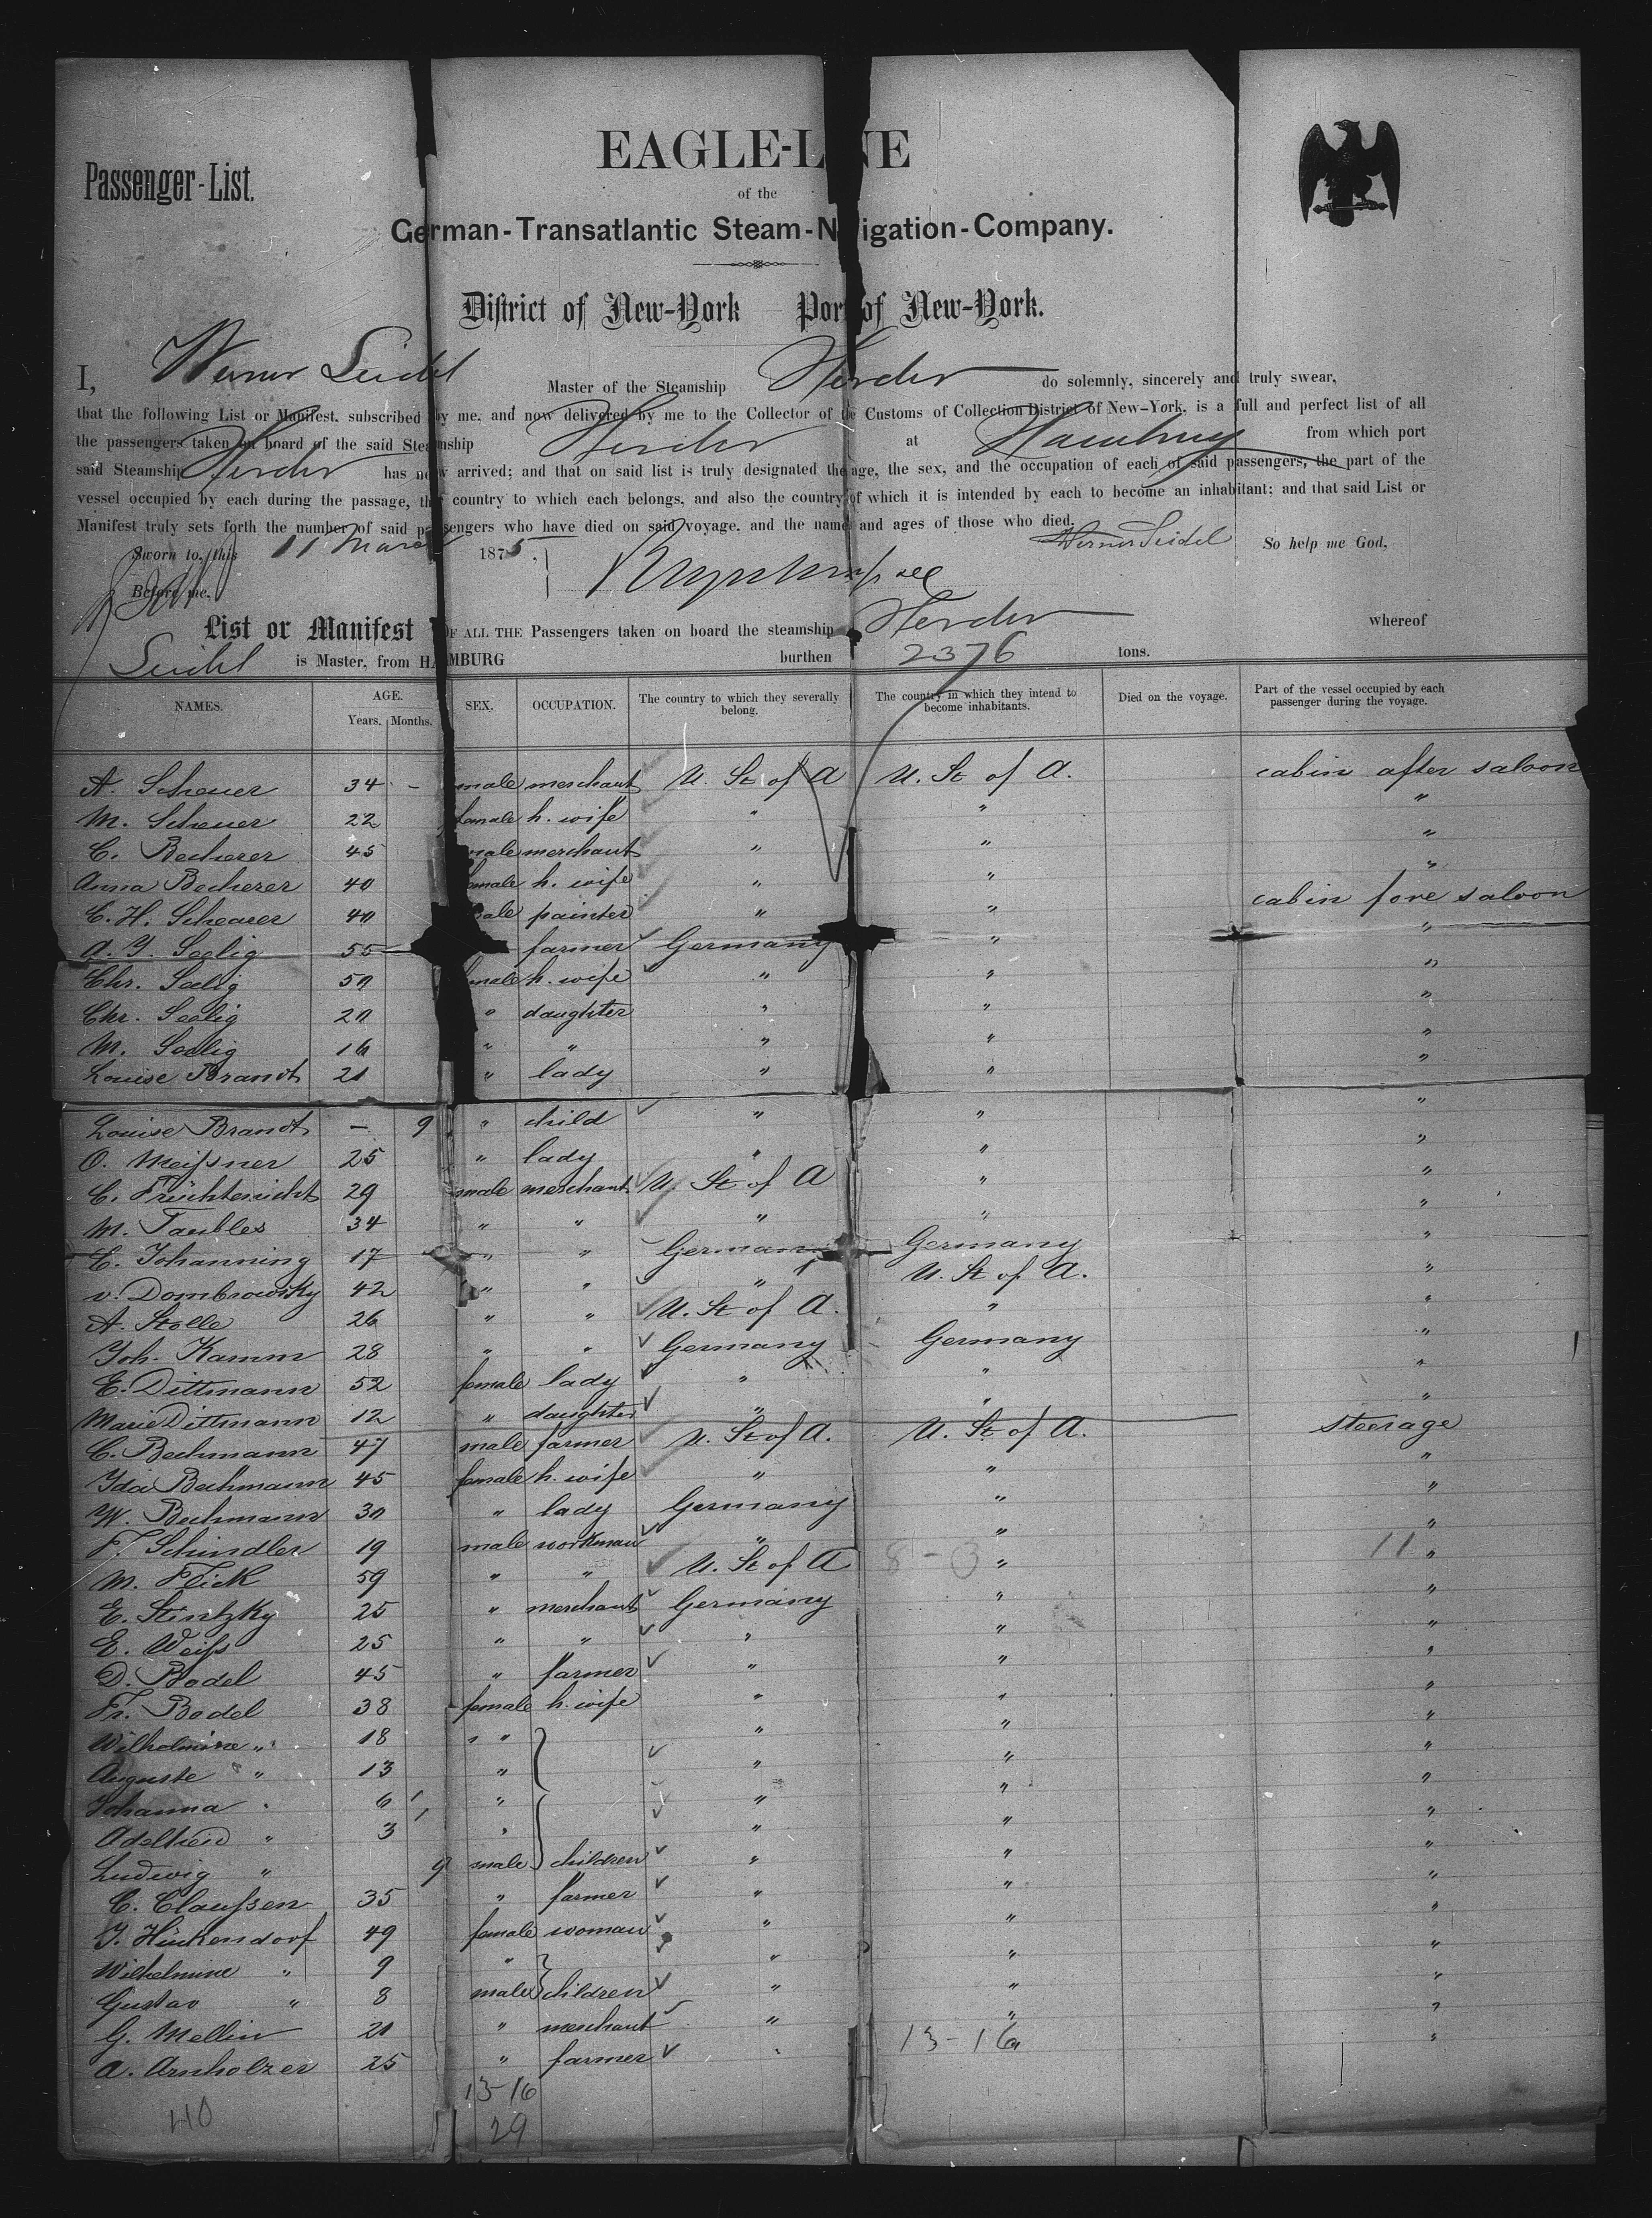 Passenger-List.
EAGLE-L NE
of the
German-Transatlantic Steam-N igation-Company.
District of New-York Port of New-York.
I, Werner Seidel Master of the Steamship Herder do solemnly, sincerely and truly swear,
that the following List or Manifest, subscribed by me, and now delivered by me to the Collector of the Customs of Collection District of New-York, is a full and perfect list of all
the passengers taken on board of the said Steamship Herder at Hamburg from which port
said Steamship Herder has now arrived; and that on said list is truly designated the age, the sex, and the occupation of each of said passengers, the part of the
vessel occupied by each during the passage, the country to which each belongs, and also the country of which it is intended by each to become an inhabitant; and that said List or
Manifest truly sets forth the number of said passengers who have died on said voyage, and the names and ages of those who died.
Sworn to, this 11 March 1875. Werner Seidel So help me God.
Before me,
List or Manifest OF ALL THE Passengers taken on board the steamship Herder whereof
Seidel is Master, from HAMBURG burthen 2376 tons.
NAMES. AGE. Years. Months. SEX. OCCUPATION. The country to which they severally belong. The country in which they intend to become inhabitants. Died on the voyage. Part of the vessel occupied by each passenger during the voyage.
A. Scheuer 34 - male merchant U. St of A U. St of A. cabin after saloon
M. Scheuer 22 female h. wife " " "
C. Becherer 45 male merchant " " "
Anna Becherer 40 female h. wife " " "
C. H. Schearer 40 male painter " " cabin fore saloon
A. Y. Seelig 55 farmer Germany " "
Chr. Seelig 50 female h. wife " " "
Chr. Seelig 20 " daughter " " "
M. Seelig 16 " " " " "
Louise Brandt 21 " lady " " "
Louise Brandt - 9 " child " " "
O. Meißner 25 " lady " " "
C. Früchtenicht 29 male merchant U. St of A " "
M. Taubles 34 " " " " "
E. Johanning 17 " " Germany Germany "
v. Dombrowsky 42 " " " U. St of A. "
A. Stolle 26 " " U. St of A. " "
Joh. Kamm 28 " " Germany Germany "
E. Dittmann 52 female lady " " "
Marie Dittmann 12 " daughter " " "
C. Bechmann 47 male farmer U. St of A. U. St of A. steerage
Ida Bechmann 45 female h. wife " " "
W. Bechmann 30 " lady Germany " "
F. Schindler 19 male workman " " "
M. Flick 59 " " U. St of A 8-0 " 11 "
E. Stintzky 25 " merchant Germany " "
E. Weiß 25 " " " " "
D. Bodel 45 " farmer " " "
Fr. Bodel 38 female h. wife " " "
Wilhelmine " 18 " " " " "
Auguste " 13 " " " "
Johanna " 6 " " " "
Adelheid " 3 " " " "
Ludwig " 9 male children " " "
C. Claußen 35 " farmer " " "
J. Hückendorf 49 female woman " " "
Wilhelmine " 9 " " " "
Gustav " 8 male children " " "
G. Mellin 21 " merchant " " "
A. Arnholzer 25 " farmer " 13-16 " "
13-16
40 29